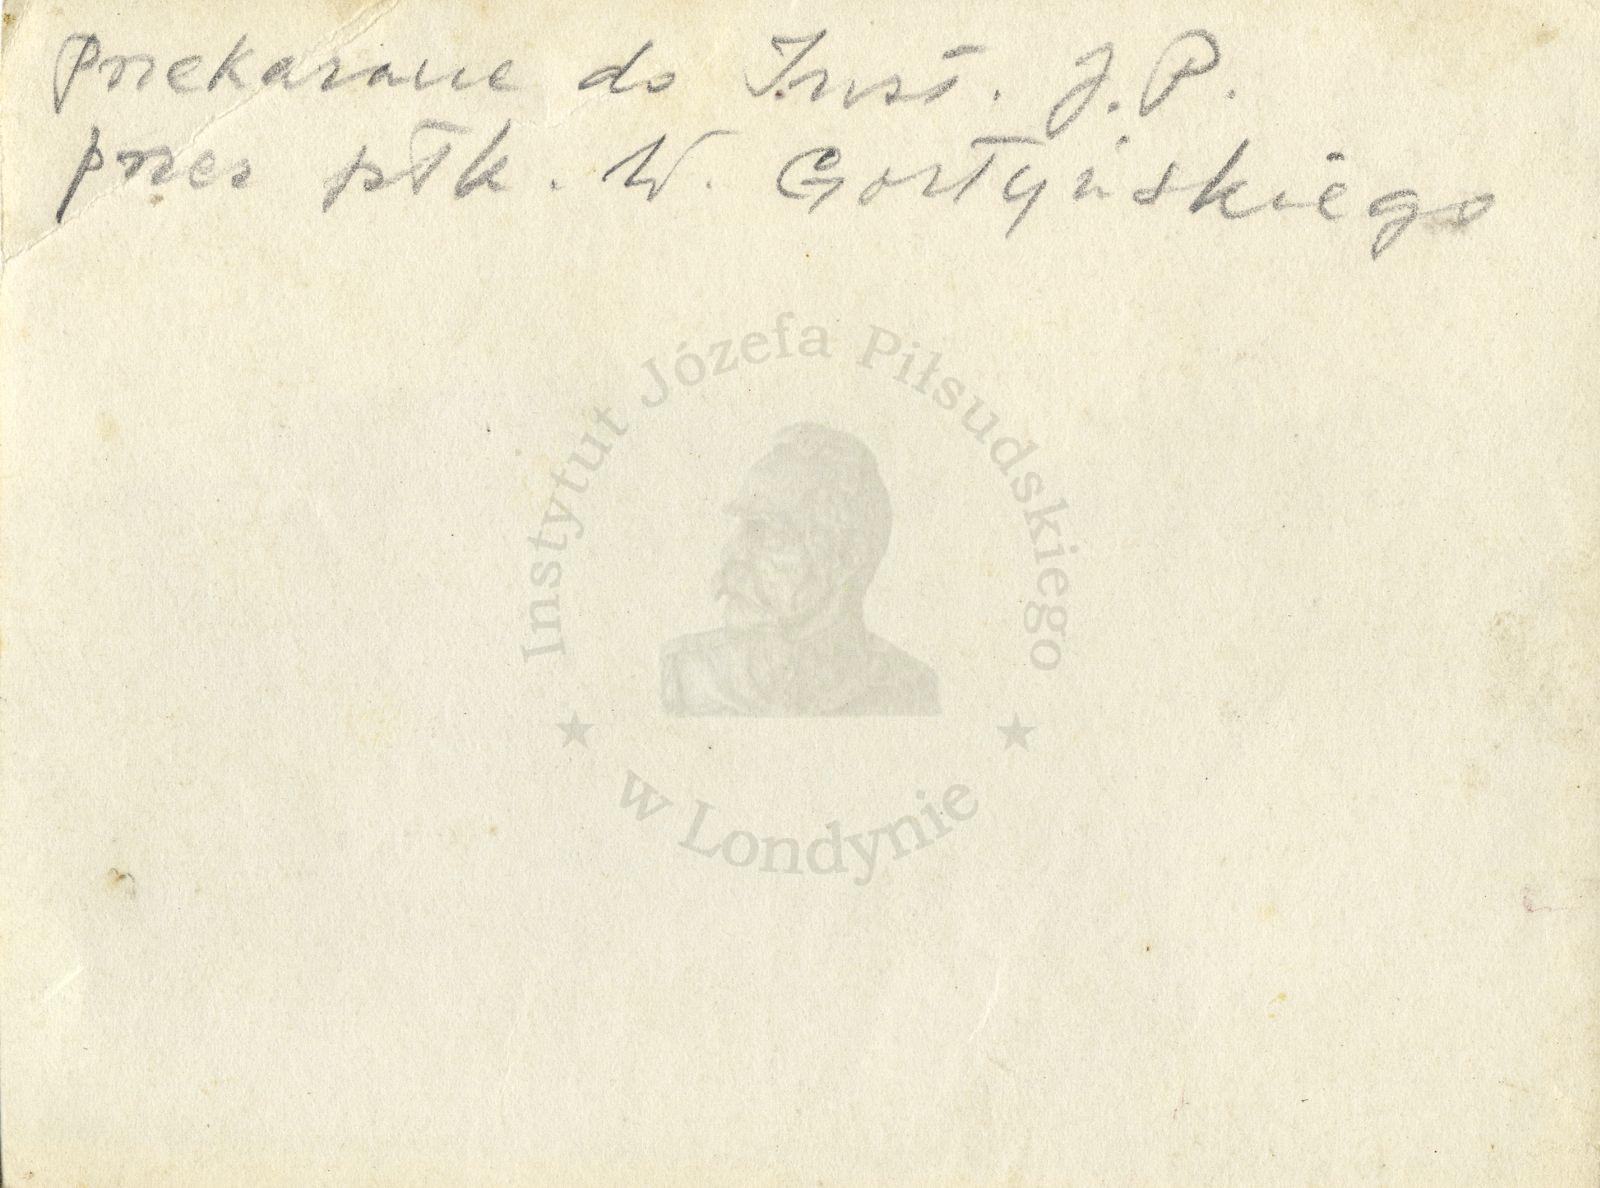 Przekazane do Inst. J. P.
przez płk. W. Gostyńskiego
Instytut Józefa Piłsudskiego
w Londynie